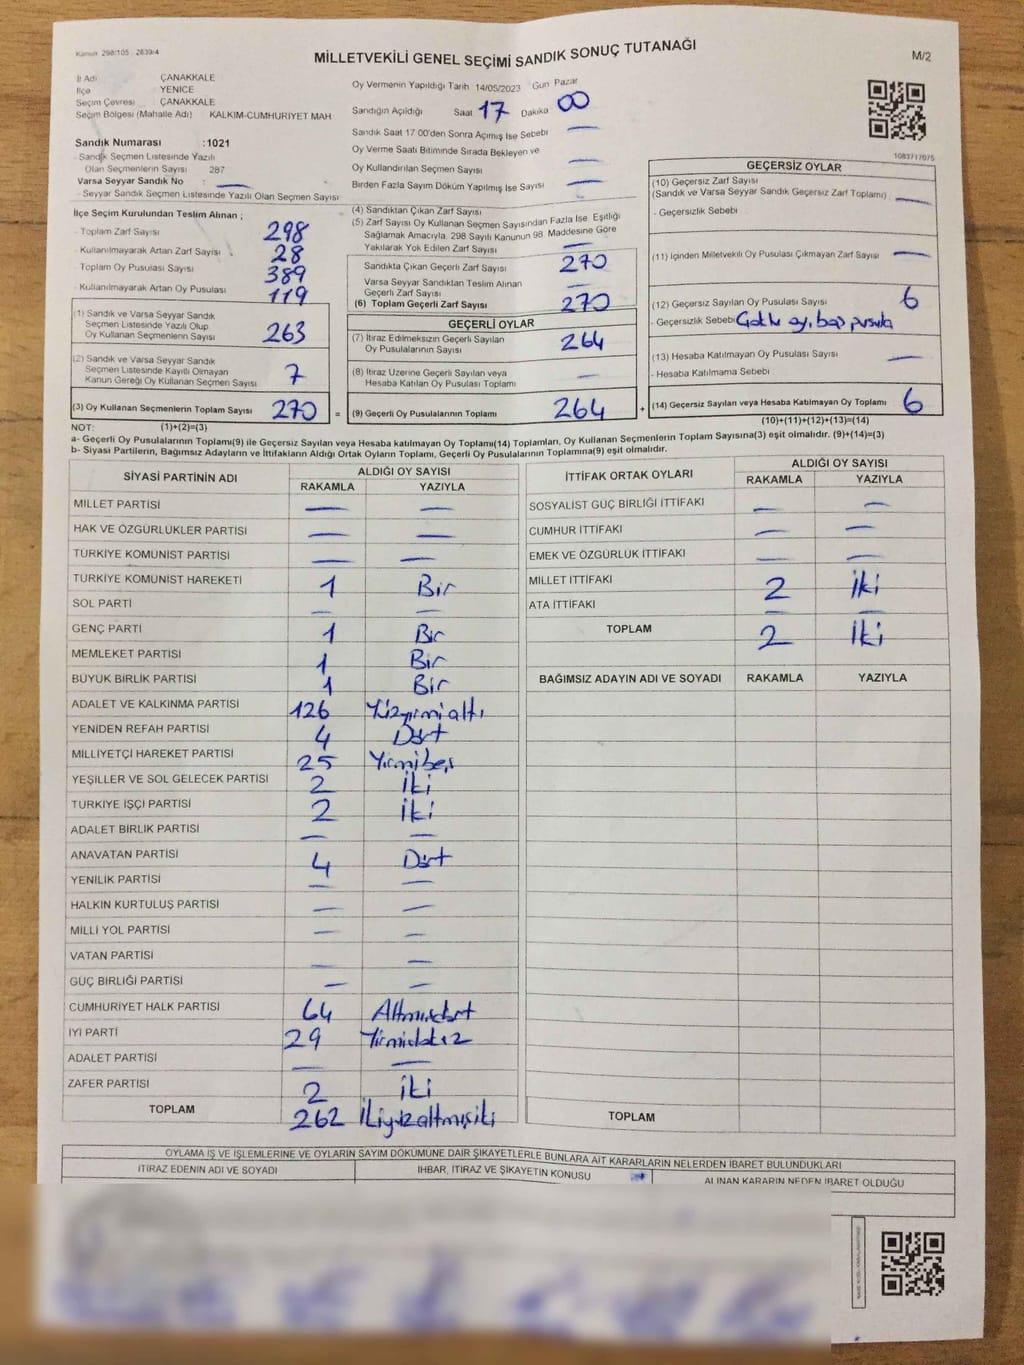 Kanun 298/105 - 2839/4
MİLLETVEKİLİ GENEL SEÇİMİ SANDIK SONUÇ TUTANAĞI
M/2
İl Adı ÇANAKKALE
İlçe YENİCE
Seçim Çevresi ÇANAKKALE
Seçim Bölgesi (Mahalle Adı) KALKIM-CUMHURİYET MAH
Sandık Numarası :1021
- Sandık Seçmen Listesinde Yazılı
Olan Seçmenlerin Sayısı 287
Varsa Seyyar Sandık No : —
- Seyyar Sandık Seçmen Listesinde Yazılı Olan Seçmen Sayısı
Oy Vermenin Yapıldığı Tarih 14/05/2023 Gün Pazar
Sandığın Açıldığı Saat 17 Dakika 00
Sandık Saat 17 00'den Sonra Açılmış İse Sebebi —
Oy Verme Saati Bitiminde Sırada Bekleyen ve
Oy Kullandırılan Seçmen Sayısı —
Birden Fazla Sayım Döküm Yapılmış İse Sayısı —
1083717075
İlçe Seçim Kurulundan Teslim Alınan ;
- Toplam Zarf Sayısı 298
- Kullanılmayarak Artan Zarf Sayısı 28
- Toplam Oy Pusulası Sayısı 389
- Kullanılmayarak Artan Oy Pusulası 119
(1) Sandık ve Varsa Seyyar Sandık
Seçmen Listesinde Yazılı Olup
Oy Kullanan Seçmenlerin Sayısı 263
(2) Sandık ve Varsa Seyyar Sandık
Seçmen Listesinde Kayıtlı Olmayan
Kanun Gereği Oy Kullanan Seçmen Sayısı 7
(3) Oy Kullanan Seçmenlerin Toplam Sayısı 270 =
(4) Sandıktan Çıkan Zarf Sayısı
(5) Zarf Sayısı Oy Kullanan Seçmen Sayısından Fazla İse Eşitliği
Sağlamak Amacıyla, 298 Sayılı Kanunun 98. Maddesine Göre
Yakılarak Yok Edilen Zarf Sayısı —
Sandıkta Çıkan Geçerli Zarf Sayısı 270
Varsa Seyyar Sandıktan Teslim Alınan
Geçerli Zarf Sayısı —
(6) Toplam Geçerli Zarf Sayısı 270
GEÇERLİ OYLAR
(7) İtiraz Edilmeksizin Geçerli Sayılan
Oy Pusulalarının Sayısı 264
(8) İtiraz Üzerine Geçerli Sayılan veya
Hesaba Katılan Oy Pusulası Toplamı —
(9) Geçerli Oy Pusulalarının Toplamı 264 +
GEÇERSİZ OYLAR
(10) Geçersiz Zarf Sayısı
(Sandık ve Varsa Seyyar Sandık Geçersiz Zarf Toplamı) —
- Geçersizlik Sebebi
(11) İçinden Milletvekili Oy Pusulası Çıkmayan Zarf Sayısı —
(12) Geçersiz Sayılan Oy Pusulası Sayısı 6
- Geçersizlik Sebebi oy, boş pusula
(13) Hesaba Katılmayan Oy Pusulası Sayısı —
- Hesaba Katılmama Sebebi
(14) Geçersiz Sayılan veya Hesaba Katılmayan Oy Toplamı 6
(10)+(11)+(12)+(13)=(14)
NOT: (1)+(2)=(3)
a- Geçerli Oy Pusulalarının Toplamı(9) ile Geçersiz Sayılan veya Hesaba katılmayan Oy Toplamı(14) Toplamları, Oy Kullanan Seçmenlerin Toplam Sayısına(3) eşit olmalıdır. (9)+(14)=(3)
b- Siyasi Partilerin, Bağımsız Adayların ve İttifakların Aldığı Ortak Oyların Toplamı, Geçerli Oy Pusulalarının Toplamına(9) eşit olmalıdır.
SİYASİ PARTİNİN ADI ALDIĞI OY SAYISI
RAKAMLA YAZIYLA
MİLLET PARTİSİ — —
HAK VE ÖZGÜRLÜKLER PARTİSİ — —
TÜRKİYE KOMÜNİST PARTİSİ — —
TÜRKİYE KOMÜNİST HAREKETİ 1 Bir
SOL PARTİ — —
GENÇ PARTİ 1 Bir
MEMLEKET PARTİSİ 1 Bir
BÜYÜK BİRLİK PARTİSİ 1 Bir
ADALET VE KALKINMA PARTİSİ 126 Yüzyirmialtı
YENİDEN REFAH PARTİSİ 4 Dört
MİLLİYETÇİ HAREKET PARTİSİ 25 Yirmibeş
YEŞİLLER VE SOL GELECEK PARTİSİ 2 İki
TÜRKİYE İŞÇİ PARTİSİ 2 İki
ADALET BİRLİK PARTİSİ — —
ANAVATAN PARTİSİ 4 Dört
YENİLİK PARTİSİ — —
HALKIN KURTULUŞ PARTİSİ — —
MİLLİ YOL PARTİSİ — —
VATAN PARTİSİ — —
GÜÇ BİRLİĞİ PARTİSİ — —
CUMHURİYET HALK PARTİSİ 64 Altmışdört
İYİ PARTİ 29 Yirmidokuz
ADALET PARTİSİ — —
ZAFER PARTİSİ 2 İki
TOPLAM 262 İkiyüzaltmışiki
İTTİFAK ORTAK OYLARI ALDIĞI OY SAYISI
RAKAMLA YAZIYLA
SOSYALİST GÜÇ BİRLİĞİ İTTİFAKI — —
CUMHUR İTTİFAKI — —
EMEK VE ÖZGÜRLÜK İTTİFAKI — —
MİLLET İTTİFAKI 2 İki
ATA İTTİFAKI — —
TOPLAM 2 İki
BAĞIMSIZ ADAYIN ADI VE SOYADI RAKAMLA YAZIYLA
TOPLAM
OYLAMA İŞ VE İŞLEMLERİNE VE OYLARIN SAYIM DÖKÜMÜNE DAİR ŞİKAYETLERLE BUNLARA AİT KARARLARIN NELERDEN İBARET BULUNDUKLARI
İTİRAZ EDENİN ADI VE SOYADI İHBAR, İTİRAZ VE ŞİKAYETİN KONUSU ALINAN KARARIN NEDEN İBARET OLDUĞU